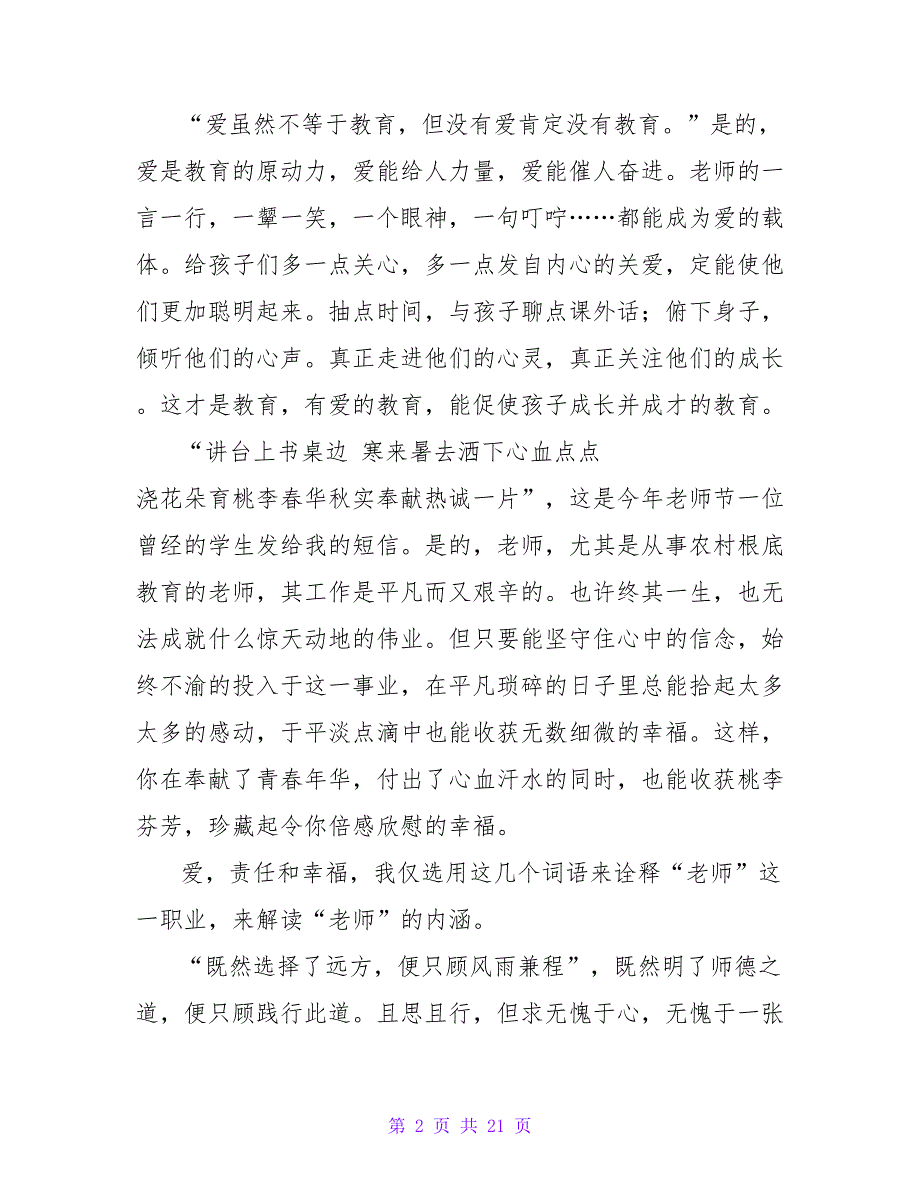 “爱虽然不等于教育，但没有爱肯定没有教育。”是的，
爱是教育的原动力，爱能给人力量，爱能催人奋进。老师的一
言一行，一颦一笑，一个眼神，一句叮咛……都能成为爱的载
体。给孩子们多一点关心，多一点发自内心的关爱，定能使他
们更加聪明起来。抽点时间，与孩子聊点课外话；俯下身子，
倾听他们的心声。真正走进他们的心灵，真正关注他们的成长
。这才是教育，有爱的教育，能促使孩子成长并成才的教育。
“讲台上书桌边 寒来暑去洒下心血点点
浇花朵育桃李春华秋实奉献热诚一片”，这是今年老师节一位
曾经的学生发给我的短信。是的，老师，尤其是从事农村根底
教育的老师，其工作是平凡而又艰辛的。也许终其一生，也无
法成就什么惊天动地的伟业。但只要能坚守住心中的信念，始
终不渝的投入于这一事业，在平凡琐碎的日子里总能拾起太多
太多的感动，于平淡点滴中也能收获无数细微的幸福。这样，
你在奉献了青春年华，付出了心血汗水的同时，也能收获桃李
芬芳，珍藏起令你倍感欣慰的幸福。
爱，责任和幸福，我仅选用这几个词语来诠释“老师”这
一职业，来解读“老师”的内涵。
“既然选择了远方，便只顾风雨兼程”，既然明了师德之
道，便只顾践行此道。且思且行，但求无愧于心，无愧于一张
第 2 页 共 21 页